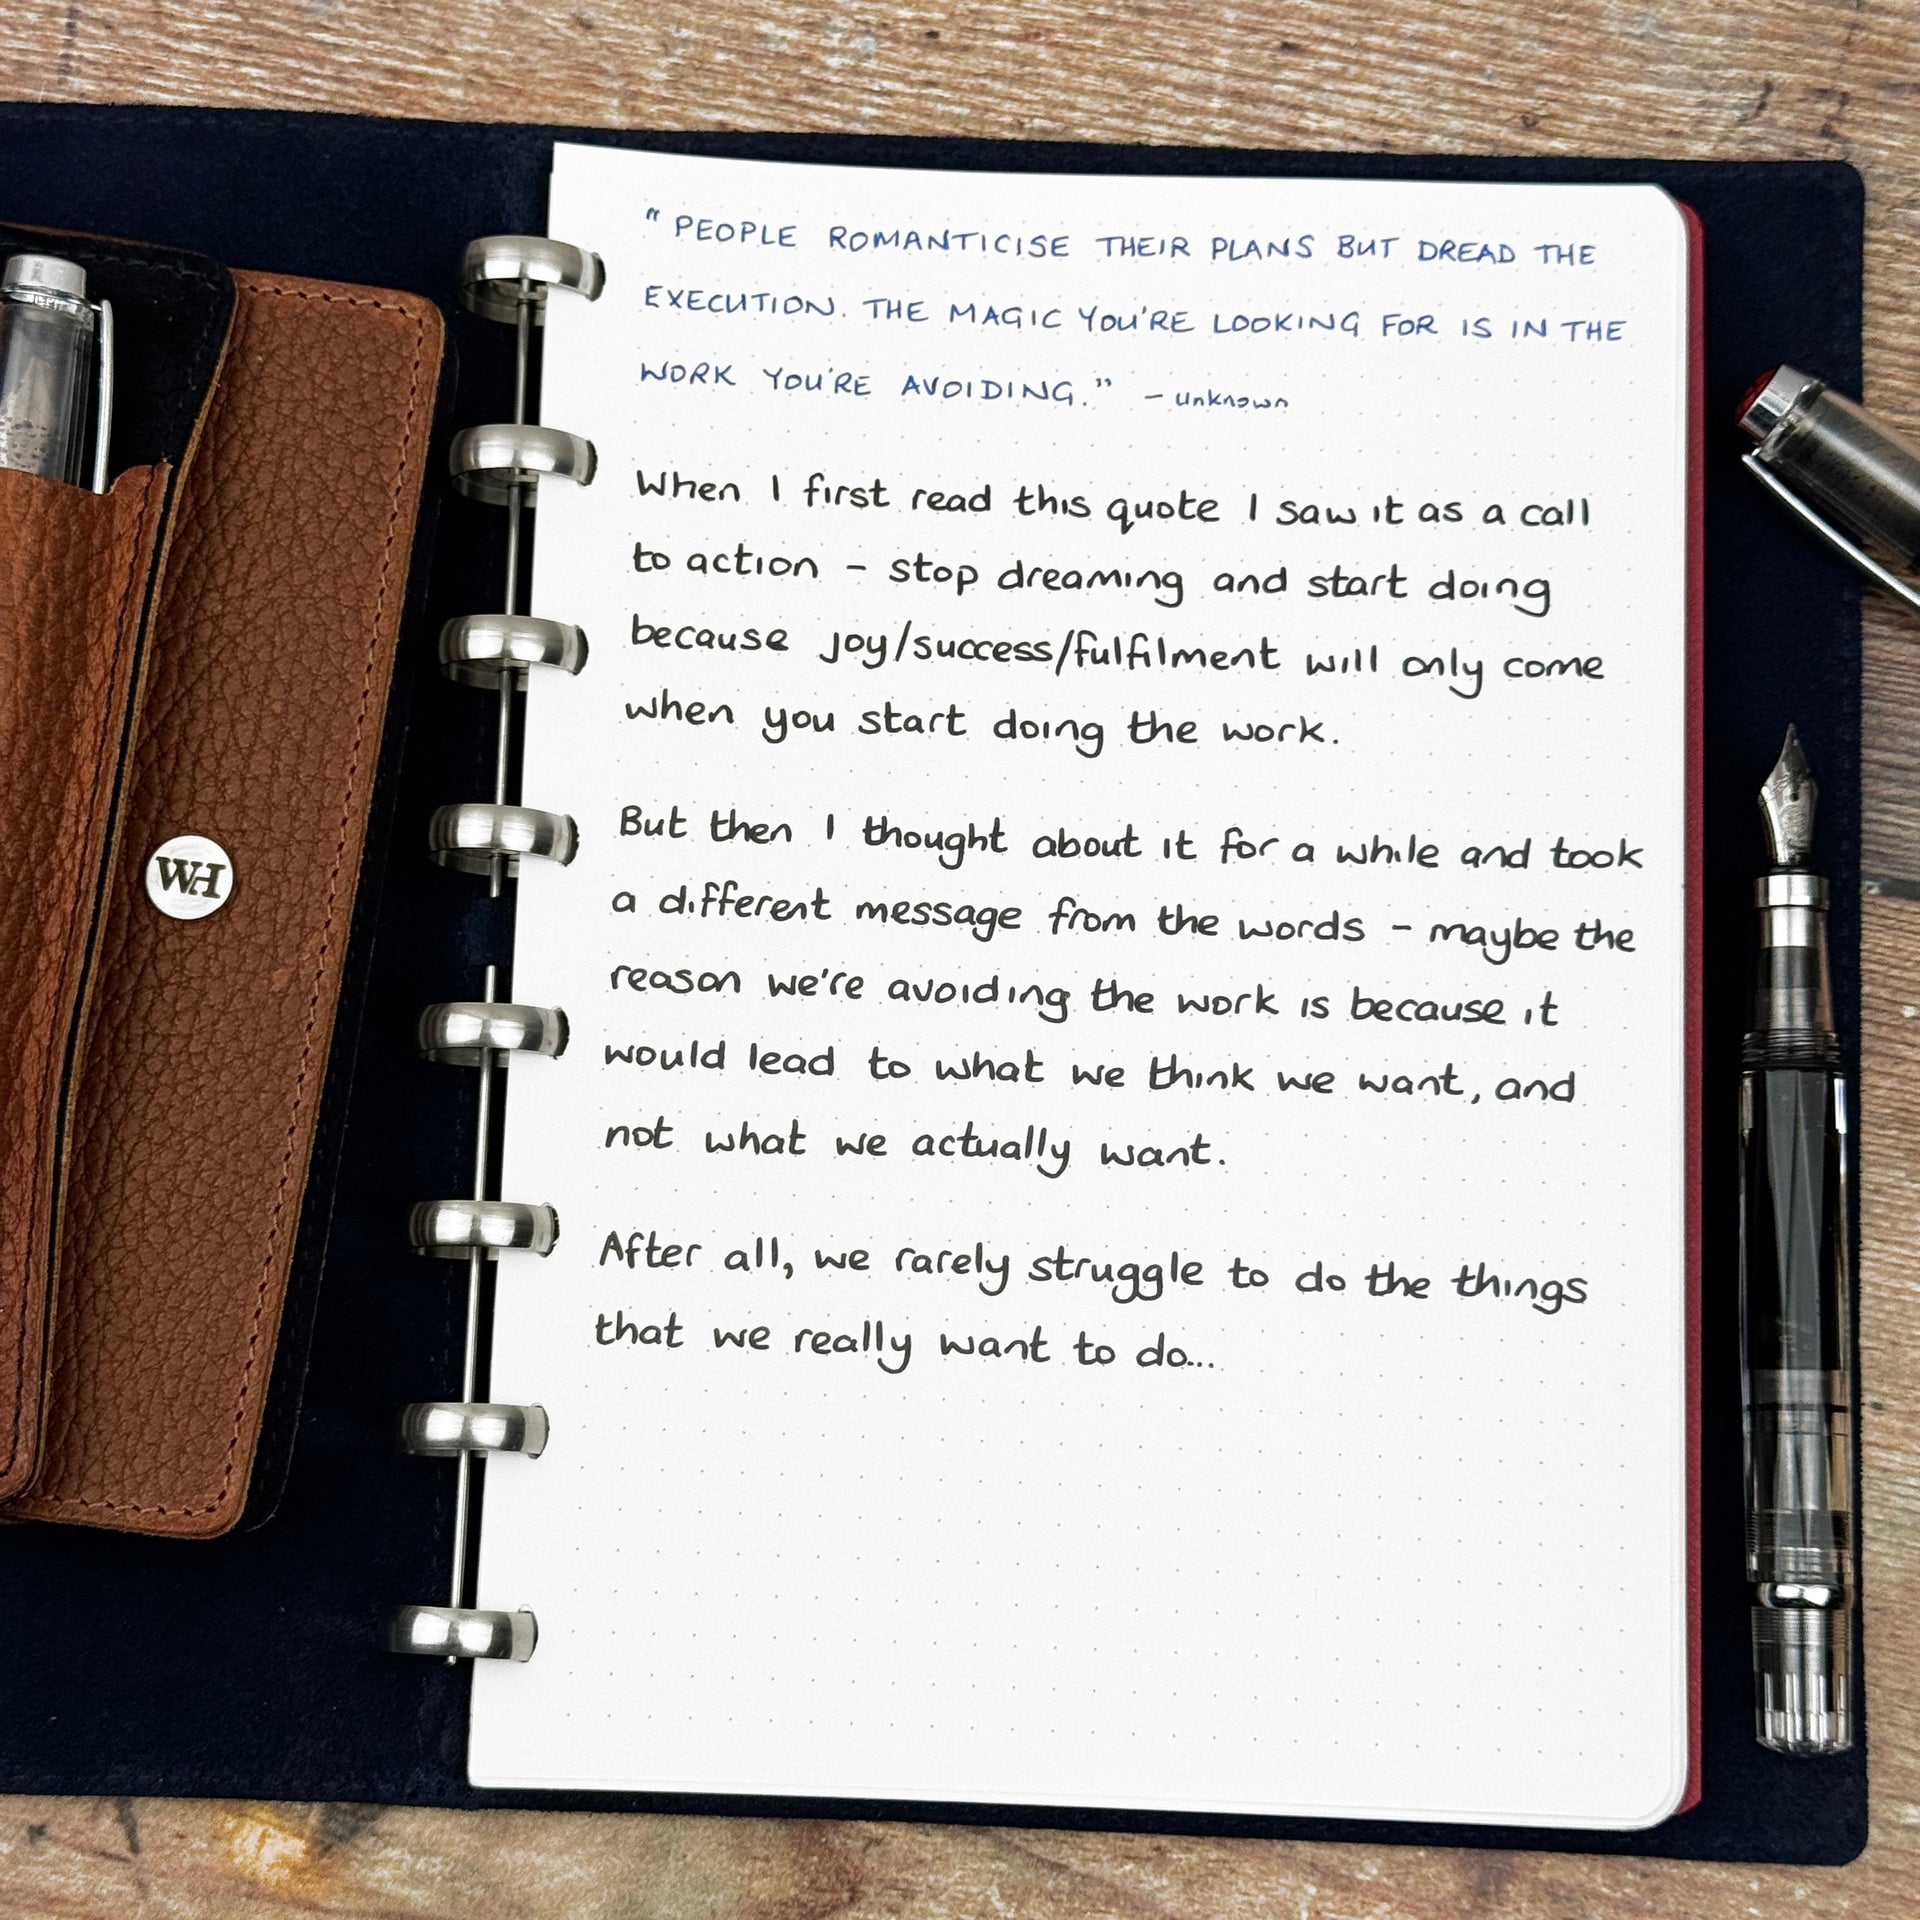 "PEOPLE ROMANTICISE THEIR PLANS BUT DREAD THE
EXECUTION. THE MAGIC YOU'RE LOOKING FOR IS IN THE
WORK YOU'RE AVOIDING." - unknown
When I first read this quote I saw it as a call
to action - stop dreaming and start doing
because joy/success/fulfilment will only come
when you start doing the work.
But then I thought about it for a while and took
a different message from the words - maybe the
reason we're avoiding the work is because it
would lead to what we think we want, and
not what we actually want.
After all, we rarely struggle to do the things
that we really want to do...
WH